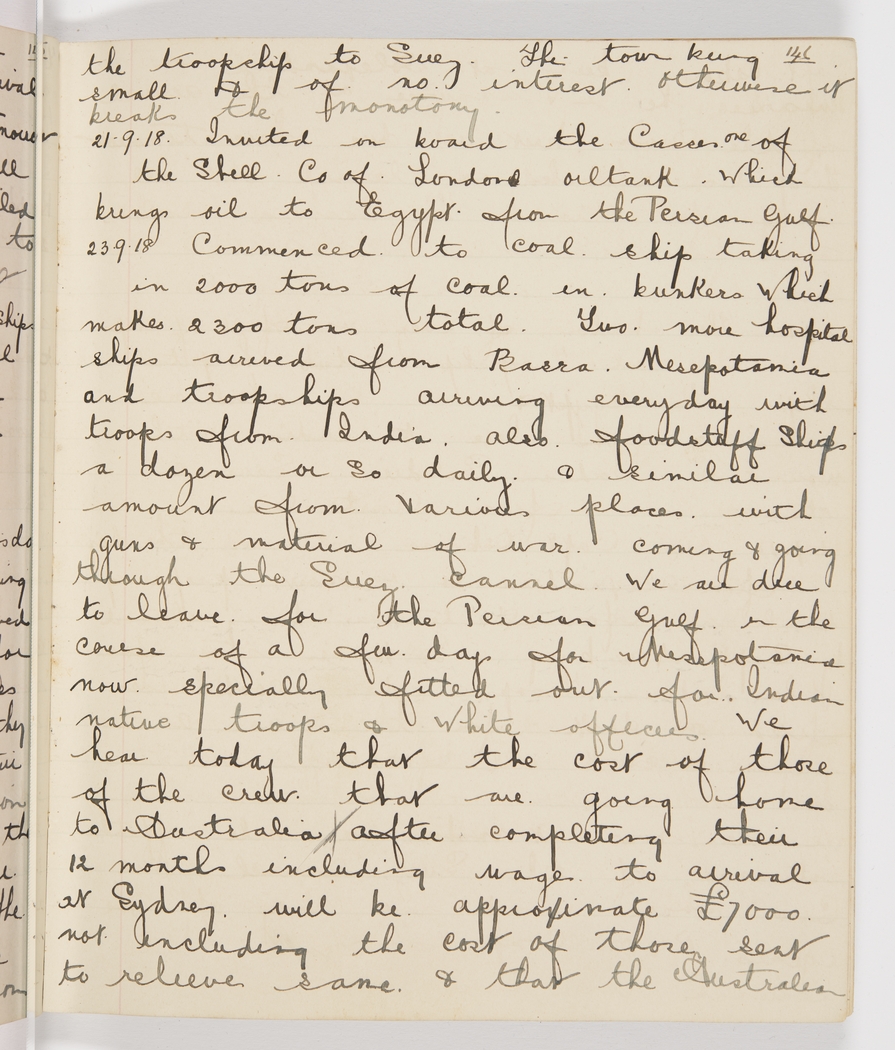 146
the troopship to Suez. The town being
small & of no. interest. otherwise it
breaks the monotony.
21.9.18. Invited on board the Casses. one of
the Shell. Co of. London oiltank. Which
brings oil to Egypt. from the Persian Gulf.
23.9.18 Commenced. to coal. ship taking
in 2000 tons of coal. in. bunkers Which
makes. 2300 tons total. Two. more hospital
ships arrived from Basra. Mesepotamia
and troopships arriving everyday with
troops from. India. also. foodstuff Ships
a dozen or so daily. & similar
amount from. Various places. with
guns & material of war. coming & going
through the Suez. Cannel. We are due
to leave. for the Persian Gulf. in the
course of a few. days for Mesepotamia
now. specially fitted out. for. Indian
native troops & White officers. We
hear today that the cost of those
of the crew. that are. going home
to Australia after completing their
12 months including wages. to arrival
at Sydney. will be. approximate £7000.
not. including the cost of those sent
to relieve same. & that the Australian